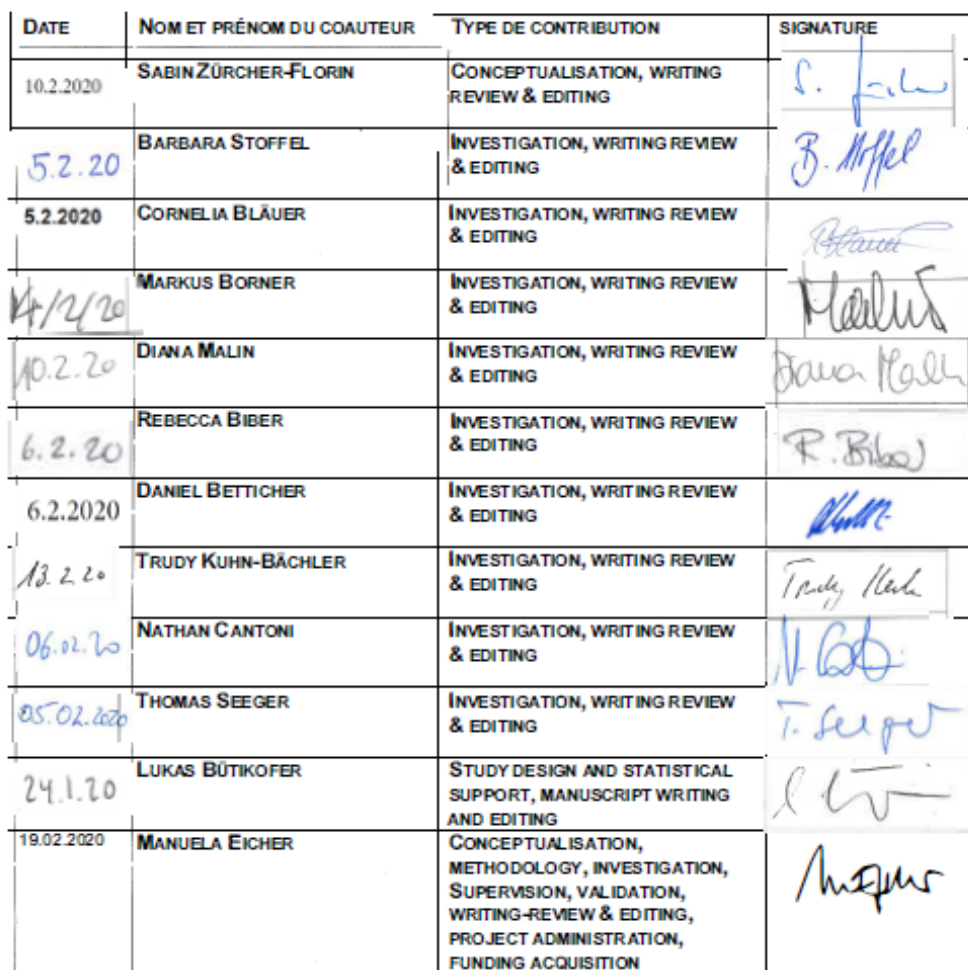 DATE NOM ET PRÉNOM DU COAUTEUR TYPE DE CONTRIBUTION SIGNATURE
10.2.2020 SABIN ZÜRCHER-FLORIN CONCEPTUALISATION, WRITING
REVIEW & EDITING
5.2.20 BARBARA STOFFEL INVESTIGATION, WRITING REVIEW B. Stoffel
& EDITING
5.2.2020 CORNELIA BLÄUER INVESTIGATION, WRITING REVIEW
& EDITING
14/2/20 MARKUS BORNER INVESTIGATION, WRITING REVIEW Markus
& EDITING
10.2.20 DIANA MALIN INVESTIGATION, WRITING REVIEW Diana Malin
& EDITING
6.2.20 REBECCA BIBER INVESTIGATION, WRITING REVIEW R. Biber
& EDITING
6.2.2020 DANIEL BETTICHER INVESTIGATION, WRITING REVIEW
& EDITING
13.2.20 TRUDY KUHN-BÄCHLER INVESTIGATION, WRITING REVIEW Trudy Kuhn
& EDITING
06.02.20 NATHAN CANTONI INVESTIGATION, WRITING REVIEW
& EDITING
05.02.2020 THOMAS SEEGER INVESTIGATION, WRITING REVIEW T. Seeger
& EDITING
24.1.20 LUKAS BÜTIKOFER STUDY DESIGN AND STATISTICAL
SUPPORT, MANUSCRIPT WRITING
AND EDITING
19.02.2020 MANUELA EICHER CONCEPTUALISATION,
METHODOLOGY, INVESTIGATION,
SUPERVISION, VALIDATION,
WRITING-REVIEW & EDITING,
PROJECT ADMINISTRATION,
FUNDING ACQUISITION